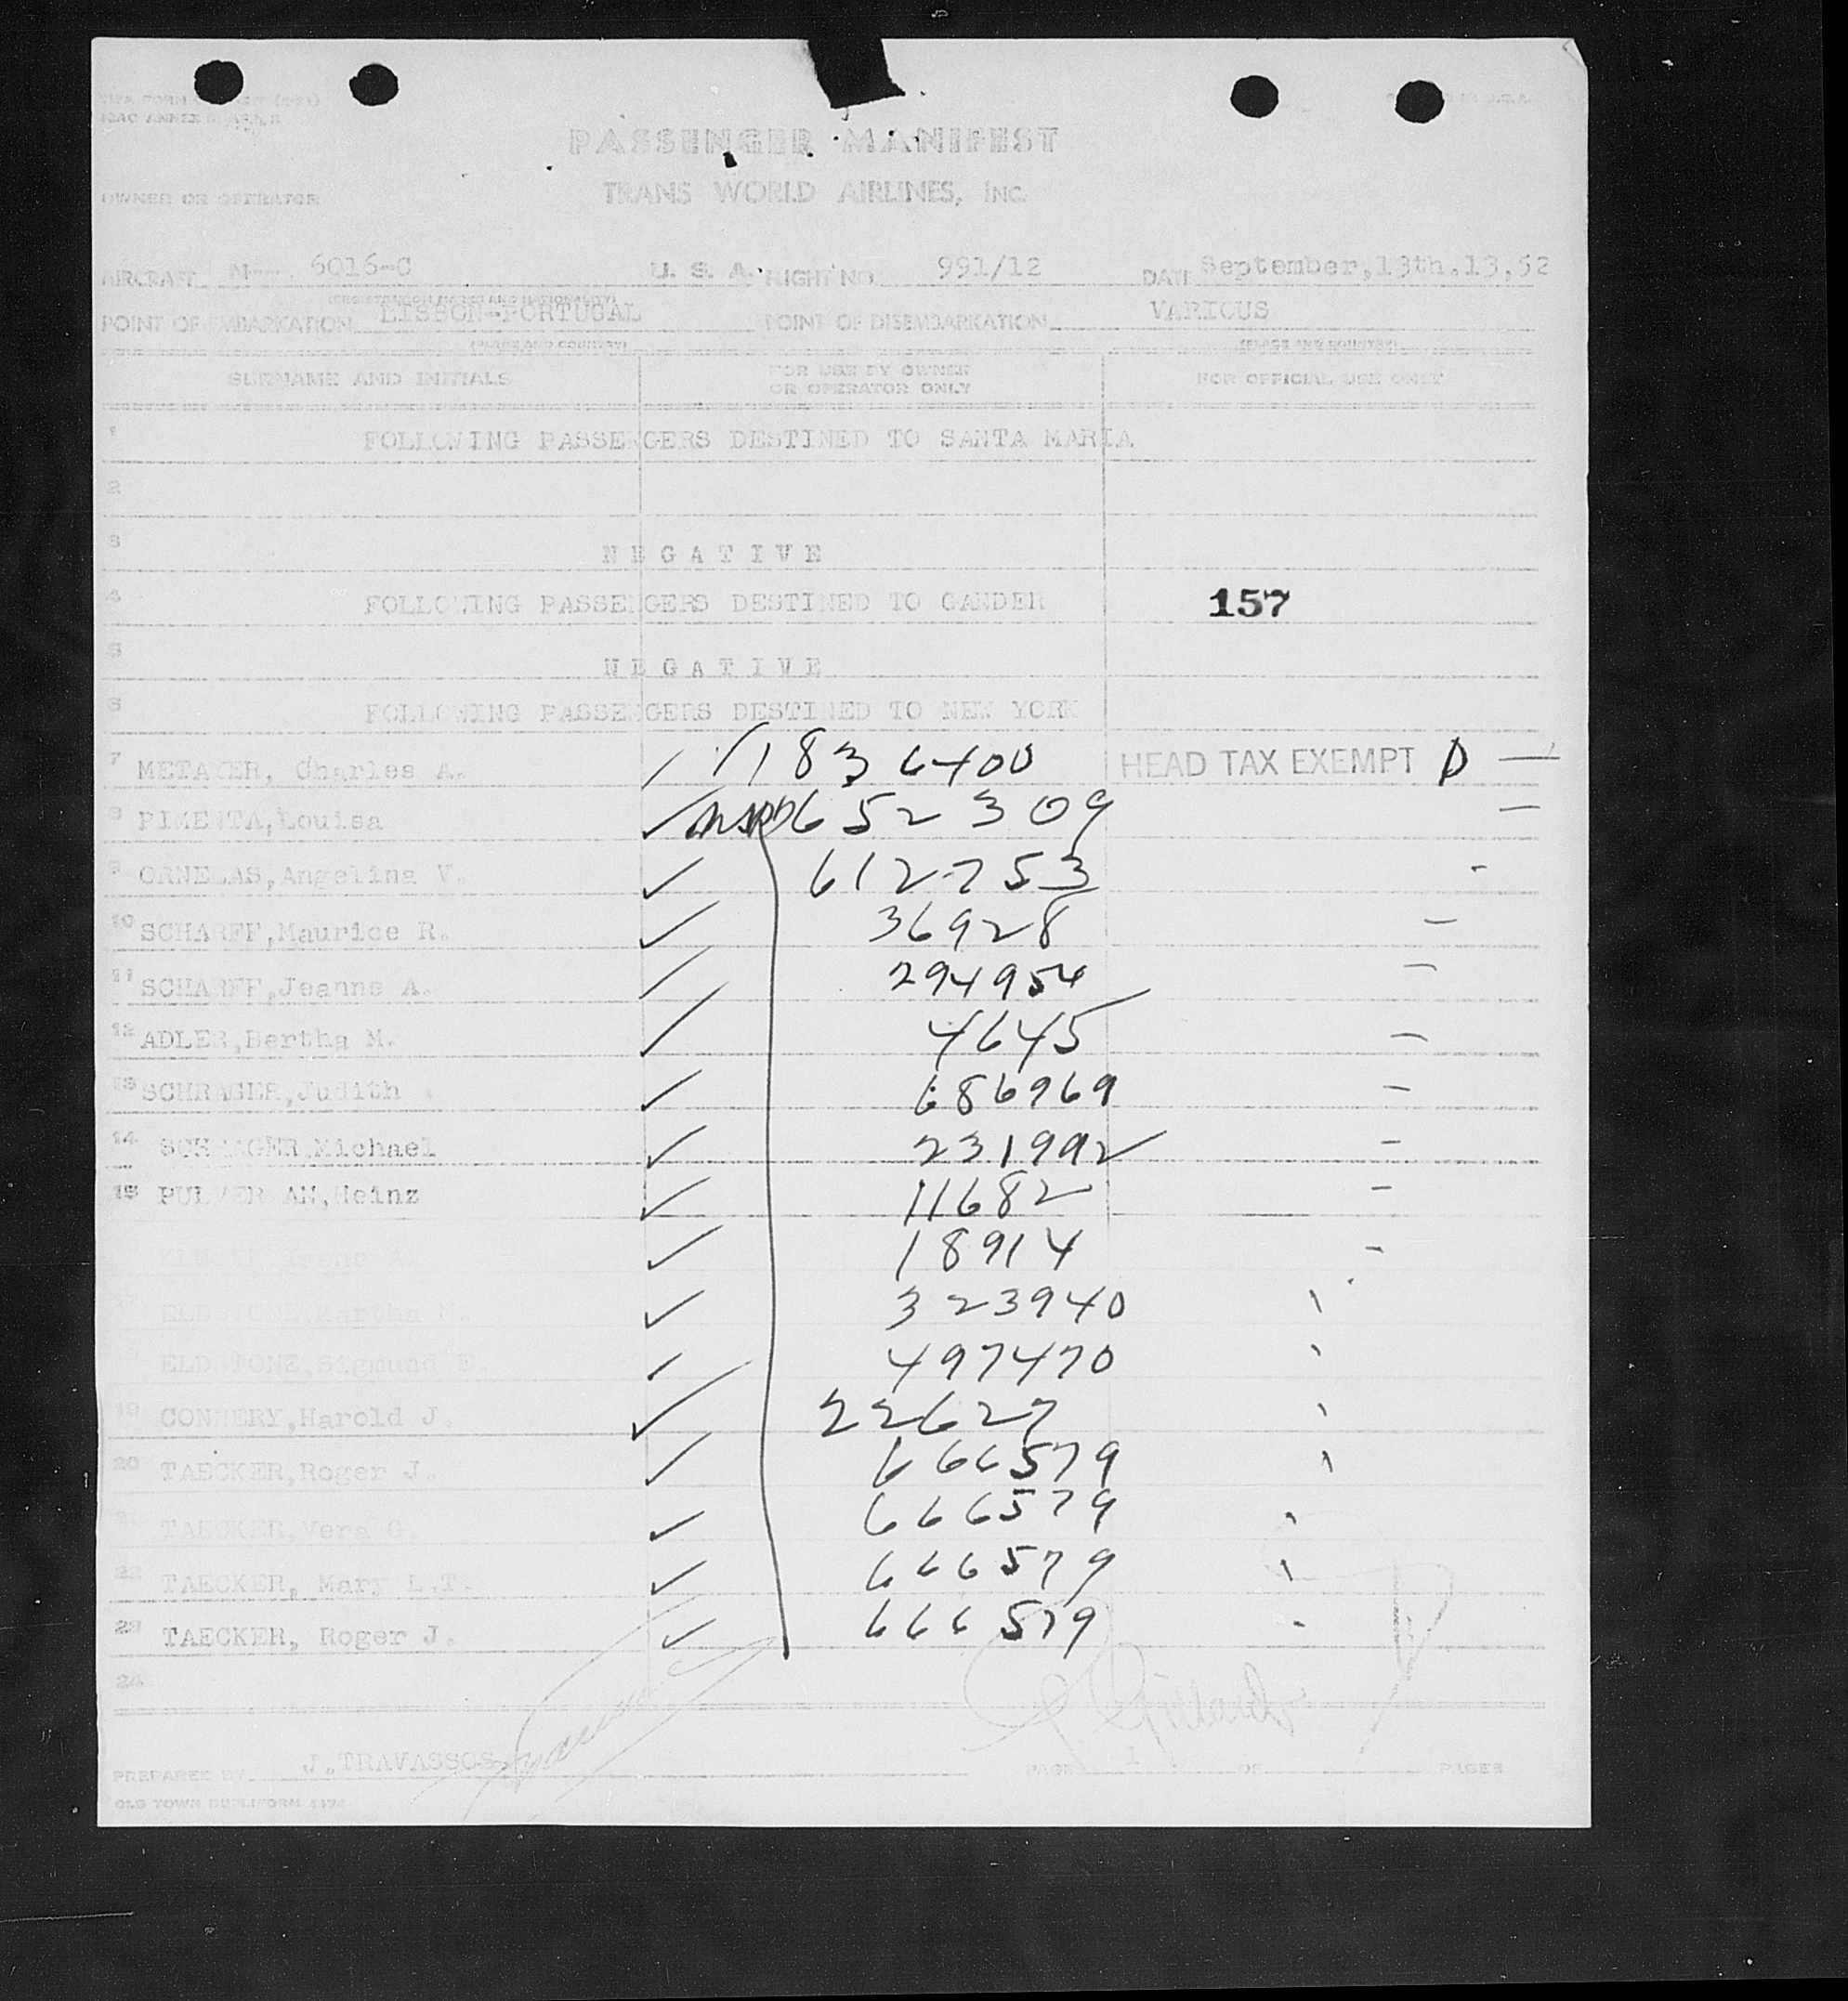 PASSENGER MANIFEST
OWNER OR OPERATOR TRANS WORLD AIRLINES, INC.
AIRCRAFT N 6016-C U. S. A. FLIGHT NO. 991/12 DATE September,13th.13,52
(REGISTRATION MARKS AND NATIONALITY)
POINT OF EMBARKATION LISBON-PORTUGAL POINT OF DISEMBARKATION VARIOUS
(PLACE AND COUNTRY) (PLACE AND COUNTRY)
SURNAME AND INITIALS FOR USE BY OWNER OR OPERATOR ONLY FOR OFFICIAL USE ONLY
1 FOLLOWING PASSENGERS DESTINED TO SANTA MARIA
2
3 NEGATIVE
4 FOLLOWING PASSENGERS DESTINED TO GANDER 157
5 NEGATIVE
6 FOLLOWING PASSENGERS DESTINED TO NEW YORK
7 METAYER, Charles A. ✓ 1836400 HEAD TAX EXEMPT D —
8 PIMENTA,Louisa ✓ 652309 —
9 ORNELAS,Angelina V. ✓ 612753 -
10 SCHARFF,Maurice R. ✓ 36928 —
11 SCHARFF,Jeanne A. ✓ 294954 —
12 ADLER,Bertha M. ✓ 4645 —
13 SCHRAGER,Judith ✓ 686969 —
14 SCHRAGER,Michael ✓ 231992 -
15 PULVER AN,Heinz ✓ 11682 -
✓ 18914 -
17 Martha M. ✓ 323940
ELDSTONE,Sigmund E. ✓ 497470
19 CONNERY,Harold J. ✓ 22627
20 TAECKER,Roger J. ✓ 666579
TAECKER,Vera G. ✓ 666579
22 TAECKER, Mary L.T. ✓ 666579
23 TAECKER, Roger J. ✓ 666579
24
PREPARED BY J.TRAVASSOS PAGE 1 OF PAGES
OLD TOWN DUPLIFORM